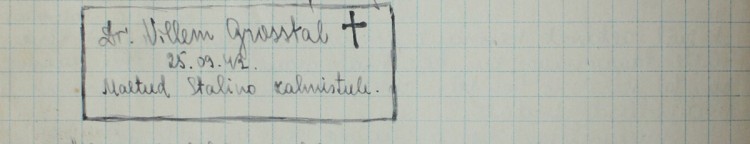 Dr. Villem Grosstal ✝
25.09.42.
Maetud Stalino kalmistule.